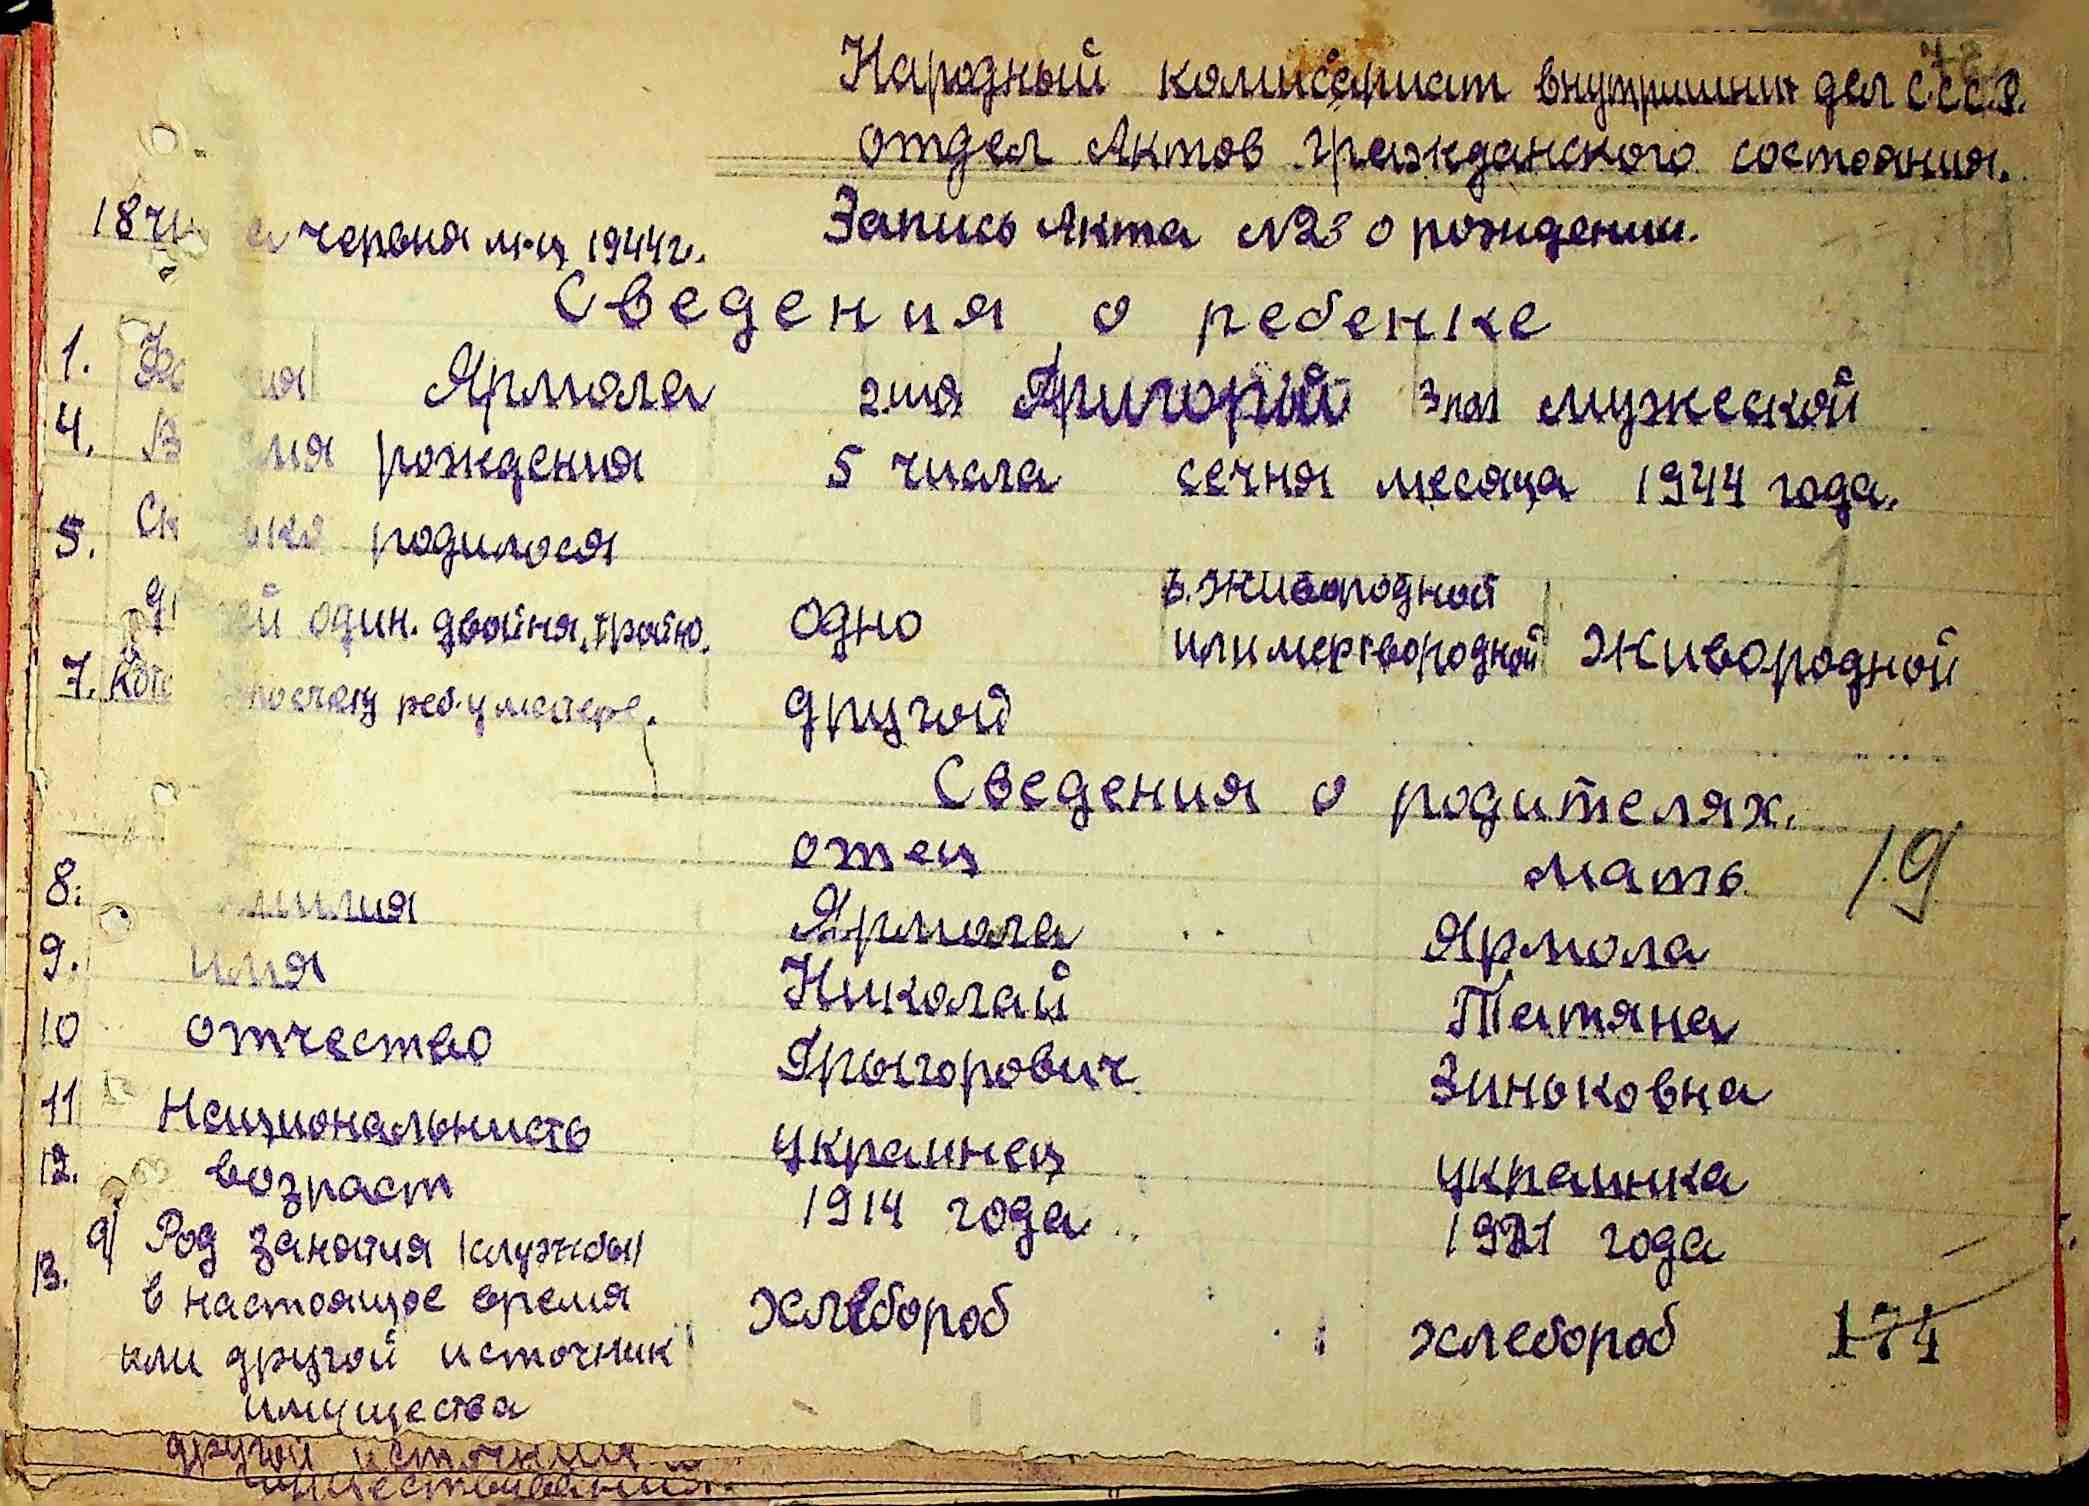 Народный комисариат внутришних дел С.С.С.Р.
отдел Актов гражданского состояния.
Запись Акта №23 о рождении.
червня м-ц 1944 г.
Сведения о ребенке
1. Ярмола 2 имя Григорий 3 пол мужеской
4. рождения 5 числа сечня месяца 1944 года.
5. родилося
один. двойня, тройню. одно 6. живородной
или мертвородной живородной
7. посчету реб. у матере. другой
Сведения о родителях.
отец мать 19
8. Ярмола Ярмола
9. имя Николай Татяна
10 отчество Грыгорович Зиньковна
11 Национальнисть украинец украинка
12. возраст 1914 года 1921 года
13. а) Род занятия (службы)
в настоящое время хлебороб хлебороб 174
или другой источник
имущества
другой источник